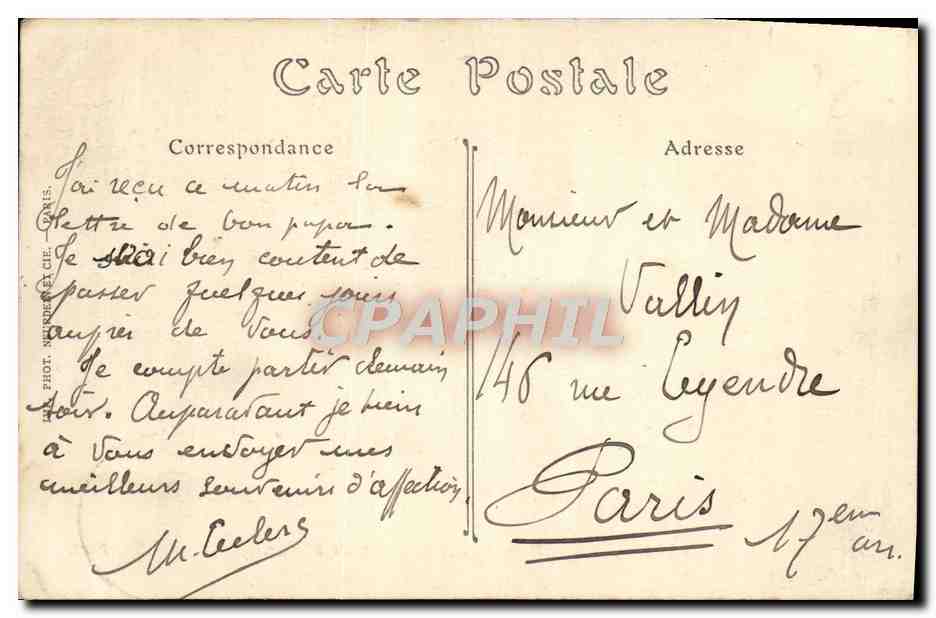 Carte Postale
Correspondance
J'ai reçu ce matin la
lettre de bon papa.
Je serai bien content de
passer quelques jours
auprès de vous.
Je compte partir demain
soir. Auparavant je tiens
à vous envoyer mes
meilleurs souvenirs d'affection.
M. Leclerc
Adresse
Monsieur et Madame
Vallin
146 rue Legendre
Paris
17em arr.
PHOT. NEURDEIN ET CIE. — PARIS.
CPAPHIL